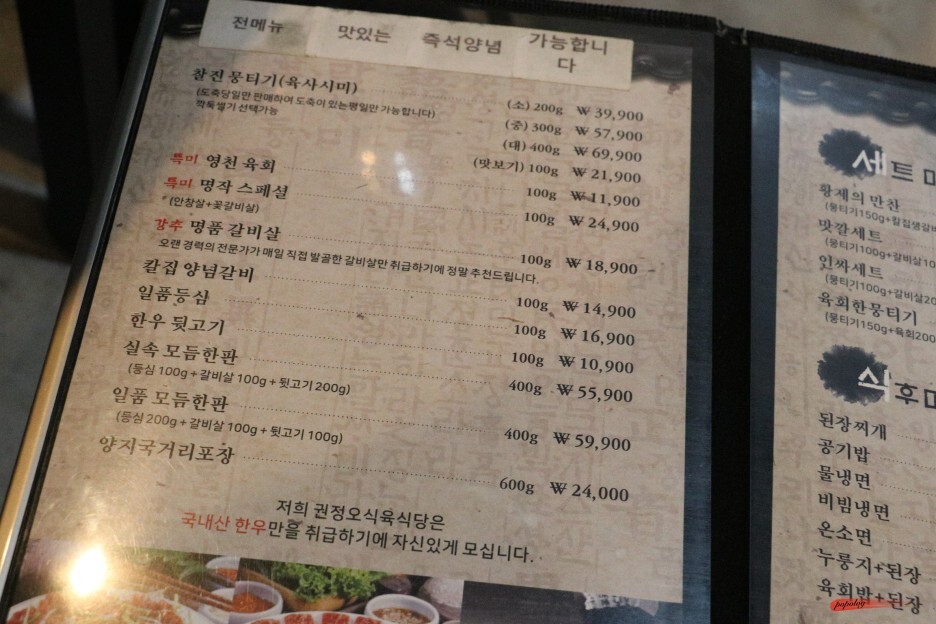 전메뉴 맛있는 즉석양념 가능합니
다
찰진 뭉티기(육사시미) (소) 200g ₩ 39,900
(도축당일만 판매하여 도축이 있는 평일만 가능합니다)
깍둑썰기 선택가능
(중) 300g ₩ 57,900
(대) 400g ₩ 69,900
(맛보기) 100g ₩ 21,900
특미 영천 육회 100g ₩ 11,900
특미 명작 스페셜 100g ₩ 24,900
(안창살+꽃갈비살)
강추 명품 갈비살 100g ₩ 18,900
오랜 경력의 전문가가 매일 직접 발골한 갈비살만 취급하기에 정말 추천드립니다.
칼집 양념갈비 100g ₩ 14,900
일품등심 100g ₩ 16,900
한우 뒷고기 100g ₩ 10,900
실속 모듬한판 400g ₩ 55,900
(등심 100g + 갈비살 100g + 뒷고기 200g)
일품 모듬한판 400g ₩ 59,900
(등심 200g + 갈비살 100g + 뒷고기 100g)
양지국거리포장 600g ₩ 24,000
저희 권정오식육식당은
국내산 한우만을 취급하기에 자신있게 모십니다.
세트
황제의 만찬
(뭉티기150g+칼집생갈비
맛깔세트
(뭉티기100g+갈비살10
인싸세트
(뭉티기100g+갈비살20
육회한뭉티기
(뭉티기150g+육회200
식후
된장찌개
공기밥
물냉면
비빔냉면
온소면
누룽지+된장
육회밥+된장
popolog